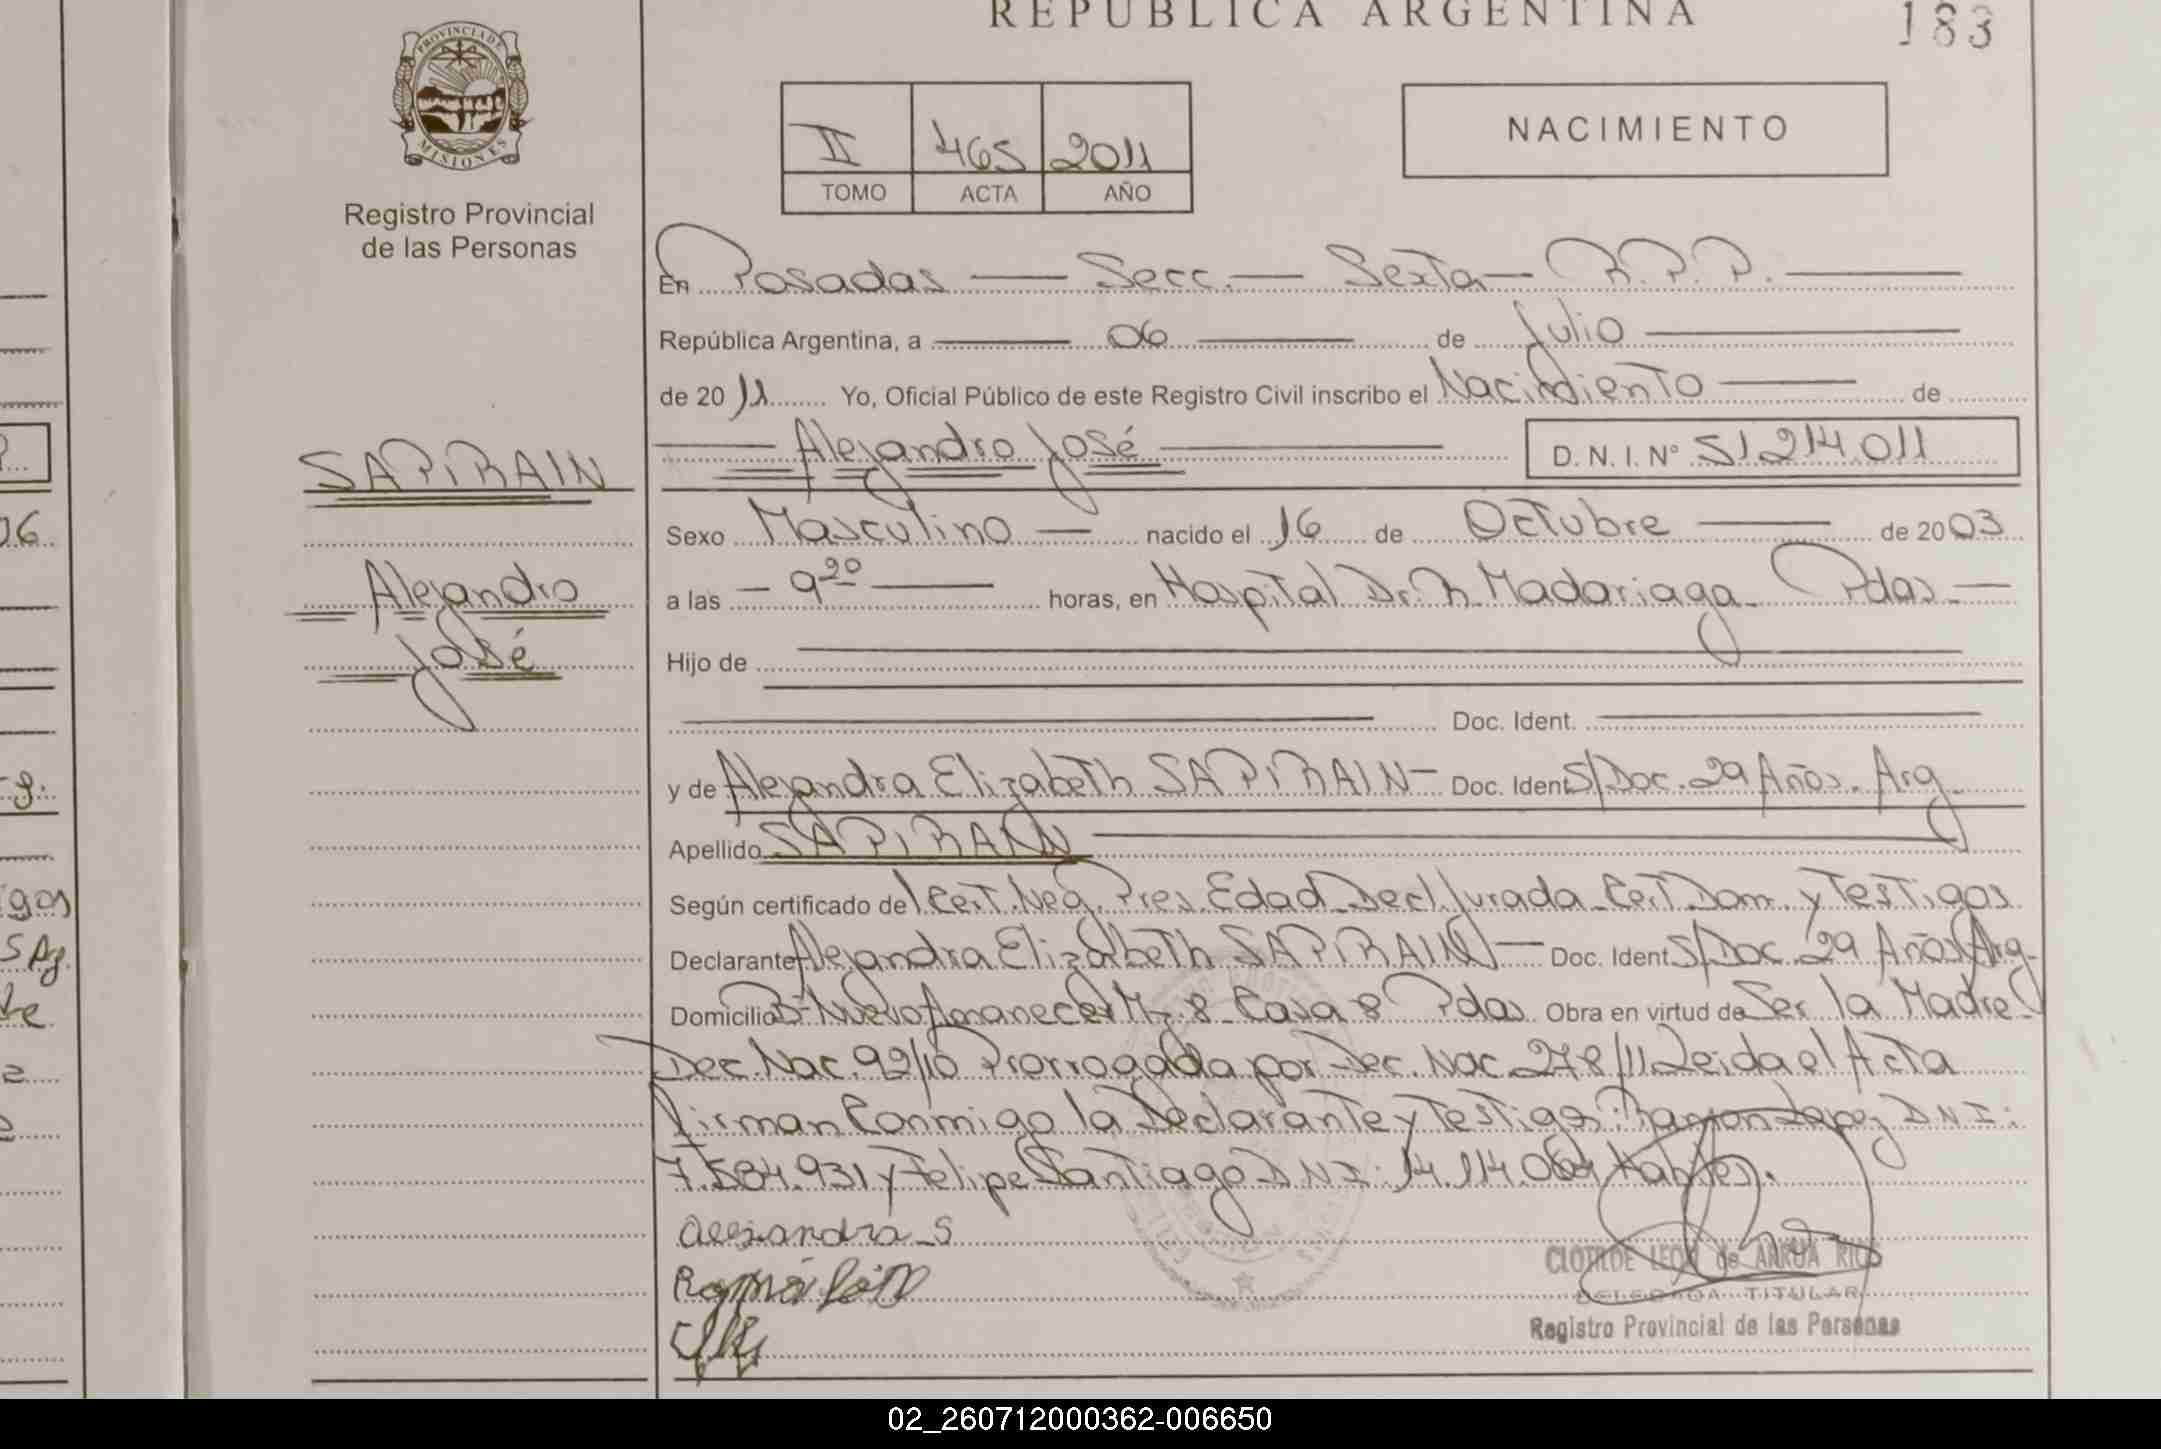 REPUBLICA ARGENTINA
183
PROVINCIA DE
MISIONES
Registro Provincial
de las Personas
II 465 2011
TOMO ACTA AÑO
NACIMIENTO
En Posadas — Secc. — Sexta — R.P.P. —
República Argentina, a — 06 — de Julio —
de 2011 Yo, Oficial Público de este Registro Civil inscribo el Nacimiento — de
— Alejandro José —
D. N. I. Nº 51.214.011
SAPIRAIN
Alejandro
José
Sexo Masculino — nacido el 16 de Octubre — de 2003
a las — 9 20 — horas, en Hospital Dr. R. Madariaga - Pdas —
Hijo de
Doc. Ident.
y de Alejandra Elizabeth SAPIRAIN — Doc. Ident S/Doc. 29 Años. Arg
Apellido SAPIRAIN
Según certificado de Cert. Neg. Pres. Edad Decl. Jurada Cert. Dom. y Testigos
Declarante Alejandra Elizabeth SAPIRAIN — Doc. Ident S/Doc. 29 Años Arg
Domicilio Bº Nuevo Amanecer Mz. 8 Casa 8 Pdas. Obra en virtud de Ser la Madre
Dec. Nac. 92/10 Prorrogada por Dec. Nac. 278/11 Leida el Acta
firman Conmigo la Declarante y Testigos: Ramon Lopez D N I:
7.584.931 y Felipe Santiago D N I: 14.114.064 Habiles.
Alejandra S
CLOTILDE LEON de ARRUA RIOS
DELEGADA TITULAR
Registro Provincial de las Personas
02_260712000362-006650